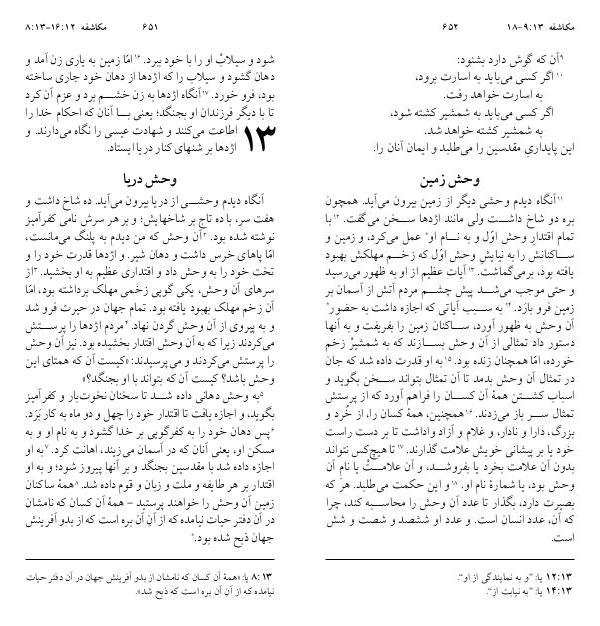 ۶۵۱ مکاشفه ۱۶:۱۲-۸:۱۳
شود و سیلاب او را با خود ببرد. ۱۶امّا زمین به یاری زن آمد و
دهان گشود و سیلاب را که اژدها از دهان خود جاری ساخته
بود، فرو خورد. ۱۷آنگاه اژدها به زن خشم برد و عزم آن کرد
تا با دیگر فرزندان او بجنگد؛ یعنی با آنان که احکام خدا را
اطاعت می‌کنند و شهادت عیسی را نگاه می‌دارند. و
۱۳ اژدها بر شنهای کنار دریا ایستاد.
وحش دریا
آنگاه دیدم وحشی از دریا بیرون می‌آید. ده شاخ داشت و
هفت سر، با ده تاج بر شاخهایش؛ و بر هر سرش نامی کفرآمیز
نوشته شده بود. ۲آن وحش که من دیدم به پلنگ می‌مانست،
امّا پاهای خرس داشت و دهان شیر. و اژدها قدرت خود را و
تخت خود را به وحش داد و اقتداری عظیم به او بخشید. ۳از
سرهای آن وحش، یکی گویی زخمی مهلک برداشته بود، امّا
آن زخم مهلک بهبود یافته بود. تمام جهان در حیرت فرو شد
و به پیروی از آن وحش گردن نهاد. ۴مردم اژدها را پرستش
می‌کردند زیرا که به آن وحش اقتدار بخشیده بود. نیز آن وحش
را پرستش می‌کردند و می‌پرسیدند: «کیست آن که همتای این
وحش باشد؟ کیست آن که بتواند با او بجنگد؟»
۵به وحش دهانی داده شد تا سخنان نخوت‌بار و کفرآمیز
بگوید، و اجازه یافت تا اقتدار خود را چهل و دو ماه به کار بَرَد.
۶پس دهان خود را به کفرگویی بر خدا گشود و به نام او و به
مسکن او، یعنی آنان که در آسمان می‌زیند، اهانت کرد. ۷به او
اجازه داده شد با مقدسین بجنگد و بر آنها پیروز شود؛ و به او
اقتدار بر هر طایفه و ملت و زبان و قوم داده شد. ۸همهٔ ساکنان
زمین آن وحش را خواهند پرستید - همهٔ آن کسان که نامشان
در آن دفتر حیات نیامده که از آنِ آن بره است که از بدو آفرینش
جهان ذبح شده بود.*
۸:۱۳ یا: «همهٔ آن کسان که نامشان از بدو آفرینش جهان در آن دفتر حیات
نیامده که از آنِ آن بره است که ذبح شد».
مکاشفه ۹:۱۳-۱۸ ۶۵۲
۹آن که گوش دارد بشنود:
۱۰اگر کسی می‌باید به اسارت برود،
به اسارت خواهد رفت.
اگر کسی می‌باید به شمشیر کشته شود،
به شمشیر کشته خواهد شد.
این پایداریِ مقدسین را می‌طلبد و ایمان آنان را.
وحش زمین
۱۱آنگاه دیدم وحشی دیگر از زمین بیرون می‌آید. همچون
بره دو شاخ داشت ولی مانند اژدها سخن می‌گفت. ۱۲با
تمام اقتدارِ وحش اوّل و به نام او* عمل می‌کرد، و زمین و
ساکنانش را به نیایش وحش اوّل که زخم مهلکش بهبود
یافته بود، برمی‌گماشت. ۱۳آیات عظیم از او به ظهور می‌رسید
و حتی موجب می‌شد پیش چشم مردم آتش از آسمان بر
زمین فرو بارَد. ۱۴به سبب آیاتی که اجازه داشت به حضور*
آن وحش به ظهور آورد، ساکنان زمین را بفریفت و به آنها
دستور داد تمثالی از آن وحش بسازند که به شمشیر زخم
خورده، امّا همچنان زنده بود. ۱۵به او قدرت داده شد که جان
در تمثال آن وحش بدمد تا آن تمثال بتواند سخن بگوید و
اسباب کشتن همهٔ آن کسان را فراهم آورد که از پرستش
تمثال سر باز می‌زدند. ۱۶همچنین، همهٔ کسان را، از خُرد و
بزرگ، دارا و نادار، و غلام و آزاد واداشت تا بر دست راست
خود یا بر پیشانی خویش علامت گذارند. ۱۷تا هیچ‌کس نتواند
بدون آن علامت بخرد یا بفروشد، و آن علامت یا نامِ آن
وحش بود، یا شمارهٔ نام او. ۱۸و این حکمت می‌طلبد. هر که
بصیرت دارد، بگذار تا عدد آن وحش را محاسبه کند، چرا
که آن، عدد انسان است. و عدد او ششصد و شصت و شش
است.
۱۲:۱۳ یا: "و به نمایندگی از او".
۱۴:۱۳ یا: "به نیابت از".